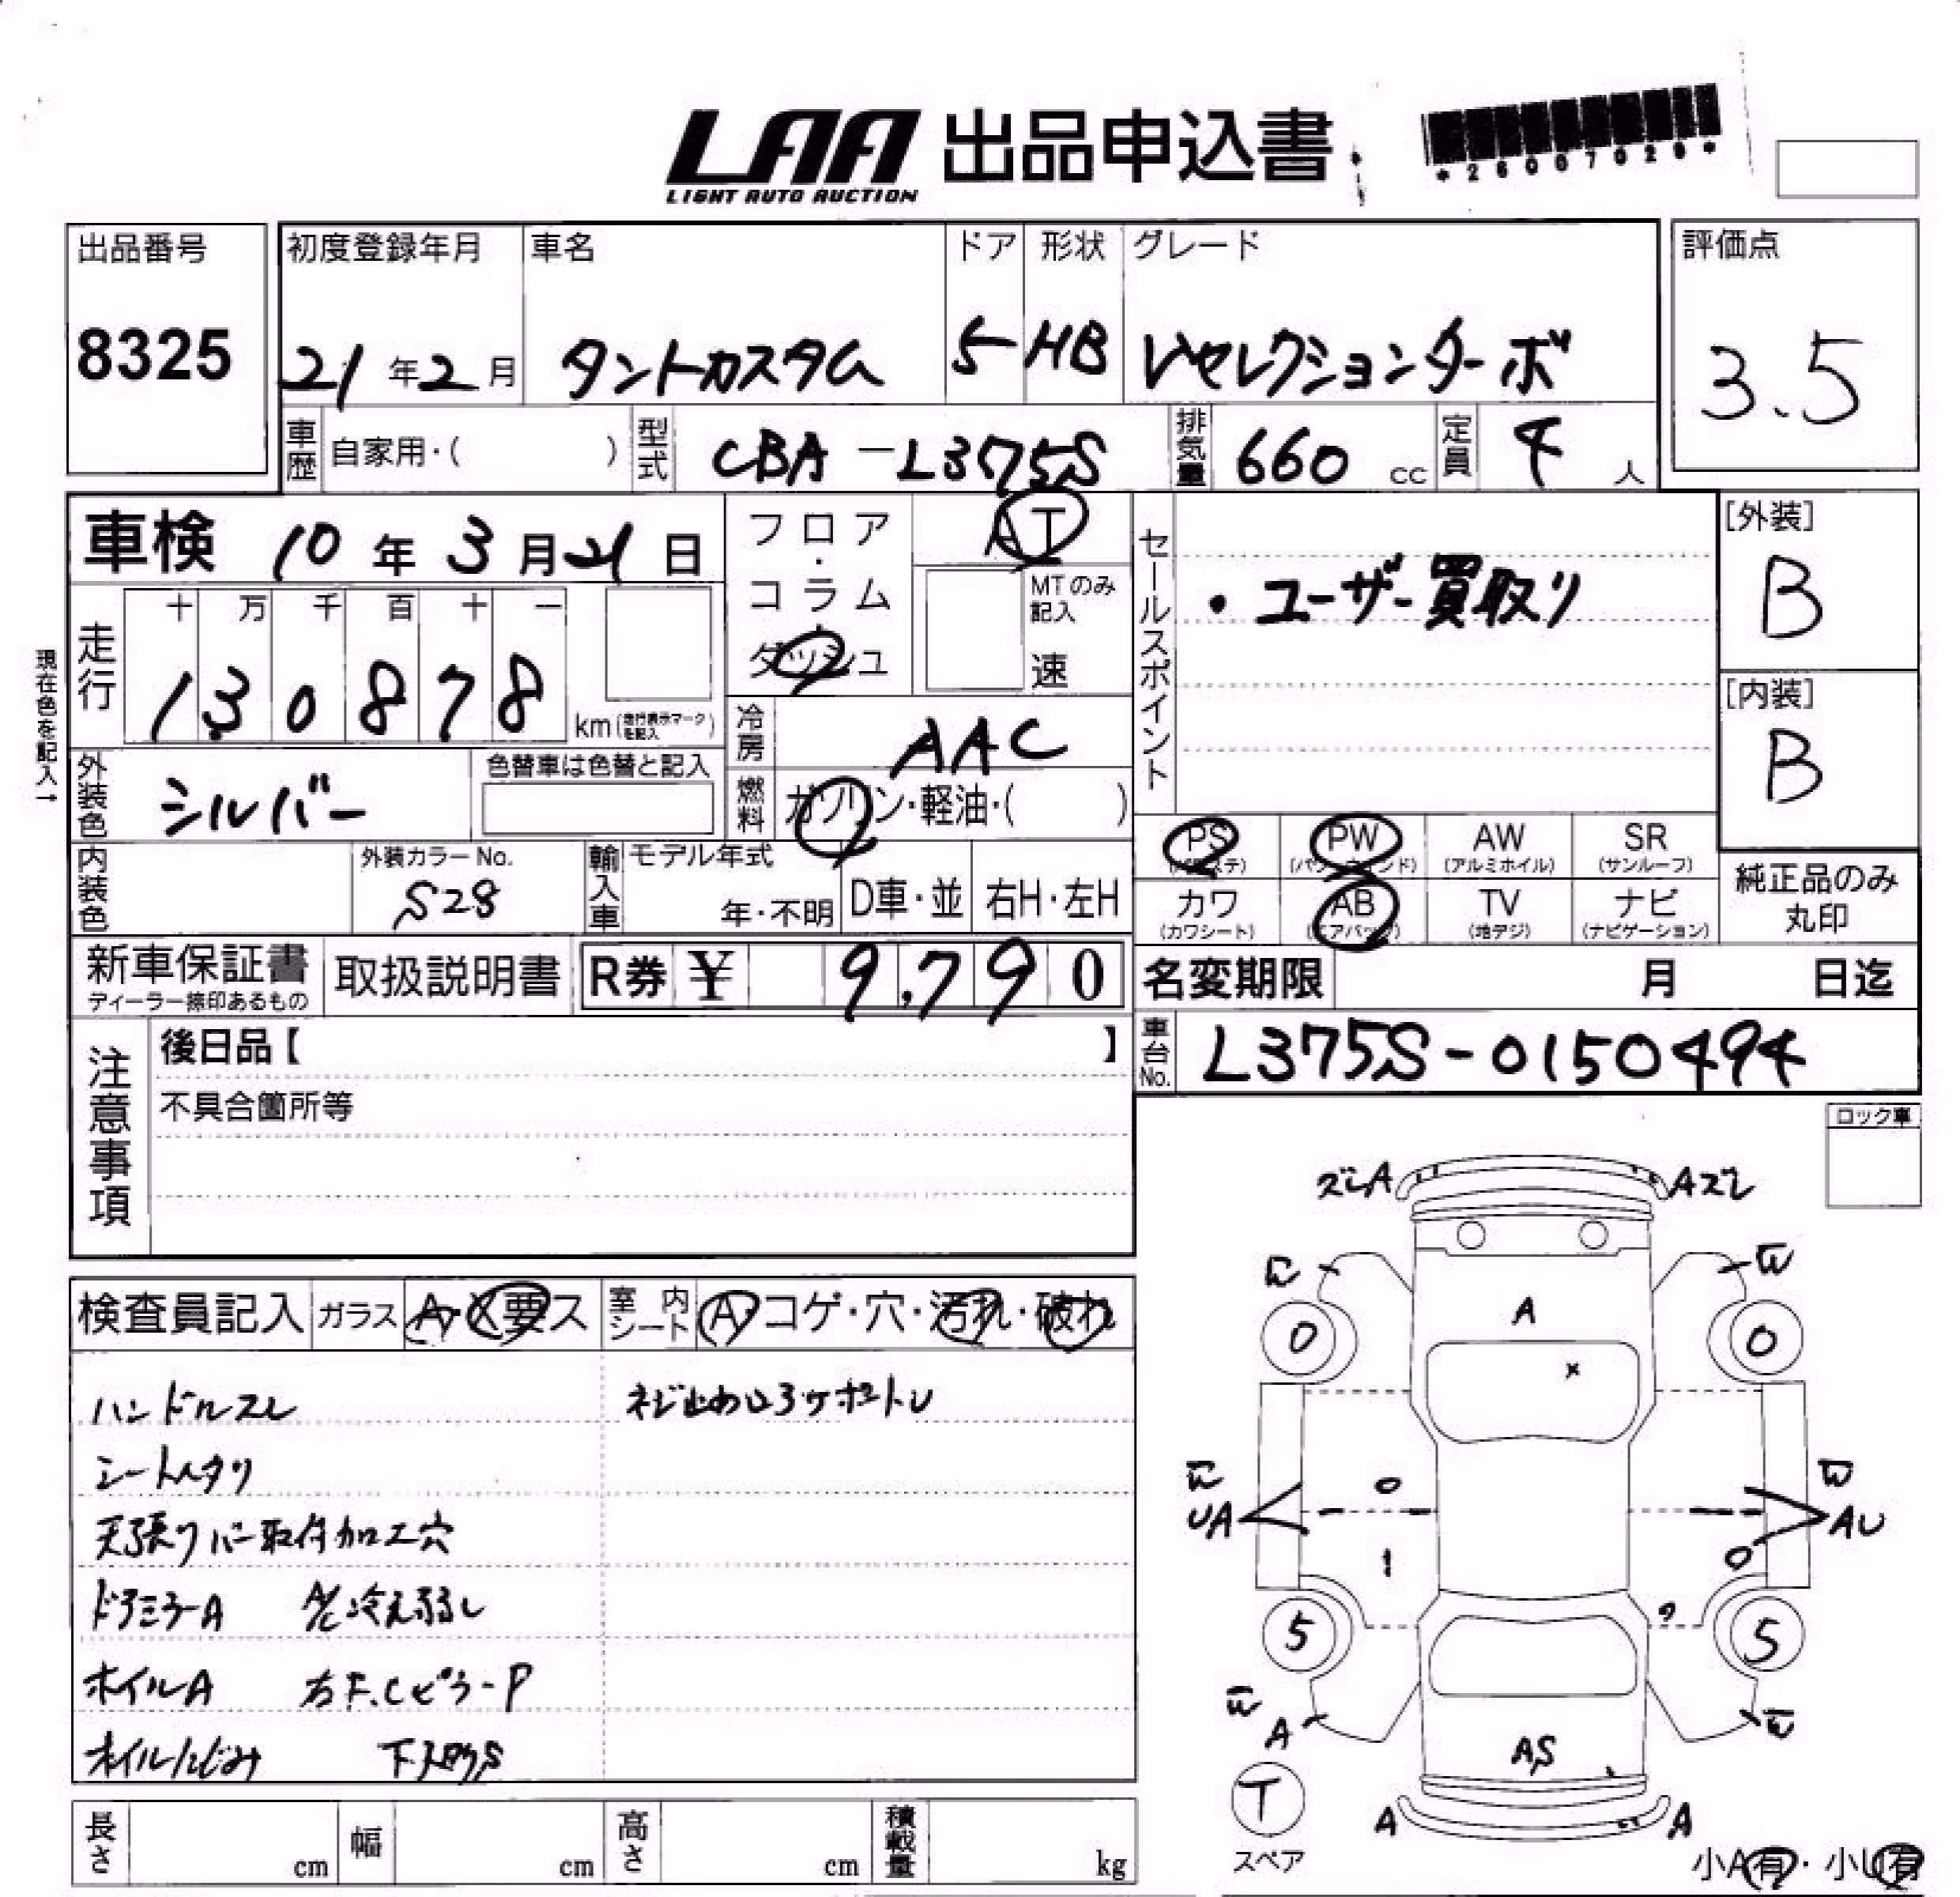 LAA 出品申込書
LIGHT AUTO AUCTION
*26007029*
出品番号
8325
初度登録年月
21年2月
車名
タントカスタム
ドア
5
形状
HB
グレード
Vセレクションターボ
評価点
3.5
車歴 自家用・( )
型式 CBA-L375S
排気量 660 cc
定員 4 人
車検 10年3月21日
フロア・コラム・ダッシュ
AT
MTのみ記入
速
セールスポイント
・ユーザー買取り
[外装]
B
[内装]
B
現在色を記入→
走行
十 万 千 百 十 一
1 3 0 8 7 8 km(走行表示マークを記入)
冷房 AAC
外装色 シルバー
色替車は色替と記入
燃料 ガソリン・軽油・( )
内装色
外装カラーNo.
S28
輸入車
モデル年式
年・不明
D車・並
右H・左H
PS (パワステ)
PW (パワーウィンド)
AW (アルミホイル)
SR (サンルーフ)
カワ (カワシート)
AB (エアバッグ)
TV (地デジ)
ナビ (ナビゲーション)
純正品のみ丸印
新車保証書
ディーラー捺印あるもの
取扱説明書
R券 ¥ 9,790
名変期限 月 日迄
注意事項
後日品【 】
不具合箇所等
車台No. L375S-0150494
ロック車
検査員記入
ガラス A・X要ス
室内シート A・コゲ・穴・汚れ・破れ
ハンドルスレ
ネジ止め
シートヘタリ
天張りバー取付加工穴
ドアミラーA A/C冷え弱し
ホイルA 右F.CピラーP
オイルにじみ 下回りS
ズレA
Aズレ
W
W
0
A
0
X
W
W
UA
AU
5
5
W
A
W
AS
T
スペア
A
A
小A有・小U有
長さ cm
幅 cm
高さ cm
積載量 kg